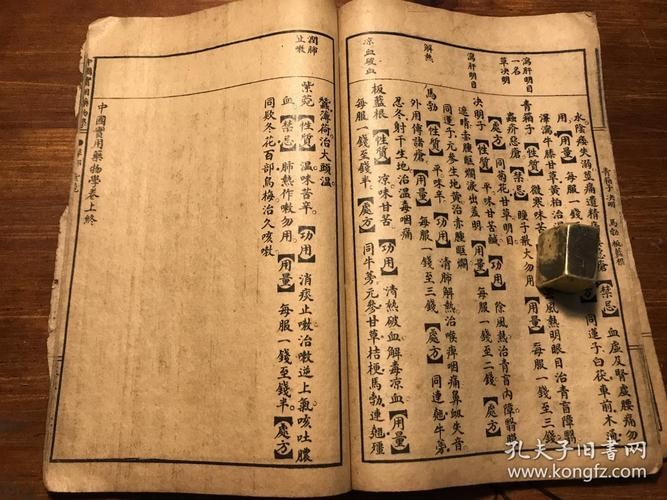 青箱子 決明 馬勃 板藍根
瀉肝明目
一名
草決明
瀉肝明目
解熱
涼血破血
水陰痿失溺莖痛遺精 惡瘡【禁忌】血虛及腎虛腰痛勿
用【用量】每服一錢 同蓮子白茯車前木瓜
澤瀉牛膝甘草黃柏治
青箱子【性質】微寒味苦 風熱明眼目治青盲障翳
蟲疥惡瘡【禁忌】瞳子散大勿用【用量】每服一錢至三錢
【處方】同菊花甘草明目
決明子【性質】平味甘苦鹹【功用】除風熱治青盲內障翳
遮睛赤腫眶爛淚出羞明【用量】每服一錢至二錢【處方】
同蓮子元參生地黃治赤腫眶爛
馬勃【性質】平味辛【功用】清肺解熱治喉痺咽痛鼻衄失音
外用傅諸瘡【用量】每服一錢至三錢【處方】同連翹牛蒡
忍冬射干生地治溫毒咽痛
板藍根【性質】涼味甘苦【功用】清熱破血解毒涼血【用量】
每服一錢至錢半【處方】同牛蒡元參甘草桔梗馬勃連翹殭
潤肺
止嗽
蠶薄荷治大頭溫
紫菀【性質】溫味苦辛【功用】消痰止嗽治嗽逆上氣咳吐膿
血【禁忌】肺熱作嗽勿用【用量】每服一錢至錢半【處方】
同欵冬花百部烏梅治久咳嗽
中國實用藥物學卷上終
孔夫子旧书网
www.kongfz.com